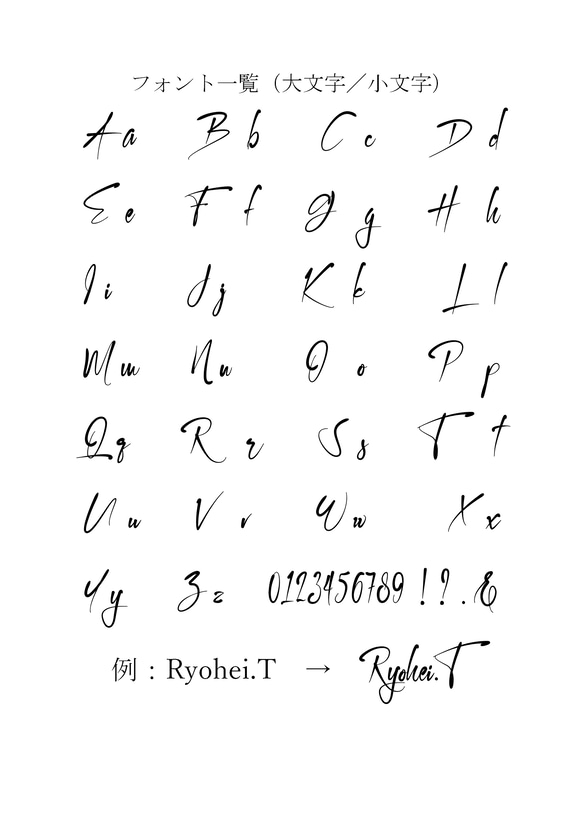 フォント一覧（大文字／小文字）
A a B b C c D d
E e F f G g H h
I i J j K k L l
M m N n O o P p
Q q R r S s T t
U u V v W w X x
Y y Z z 0123456789 ! ? . &
例：Ryohei.T → Ryohei.T